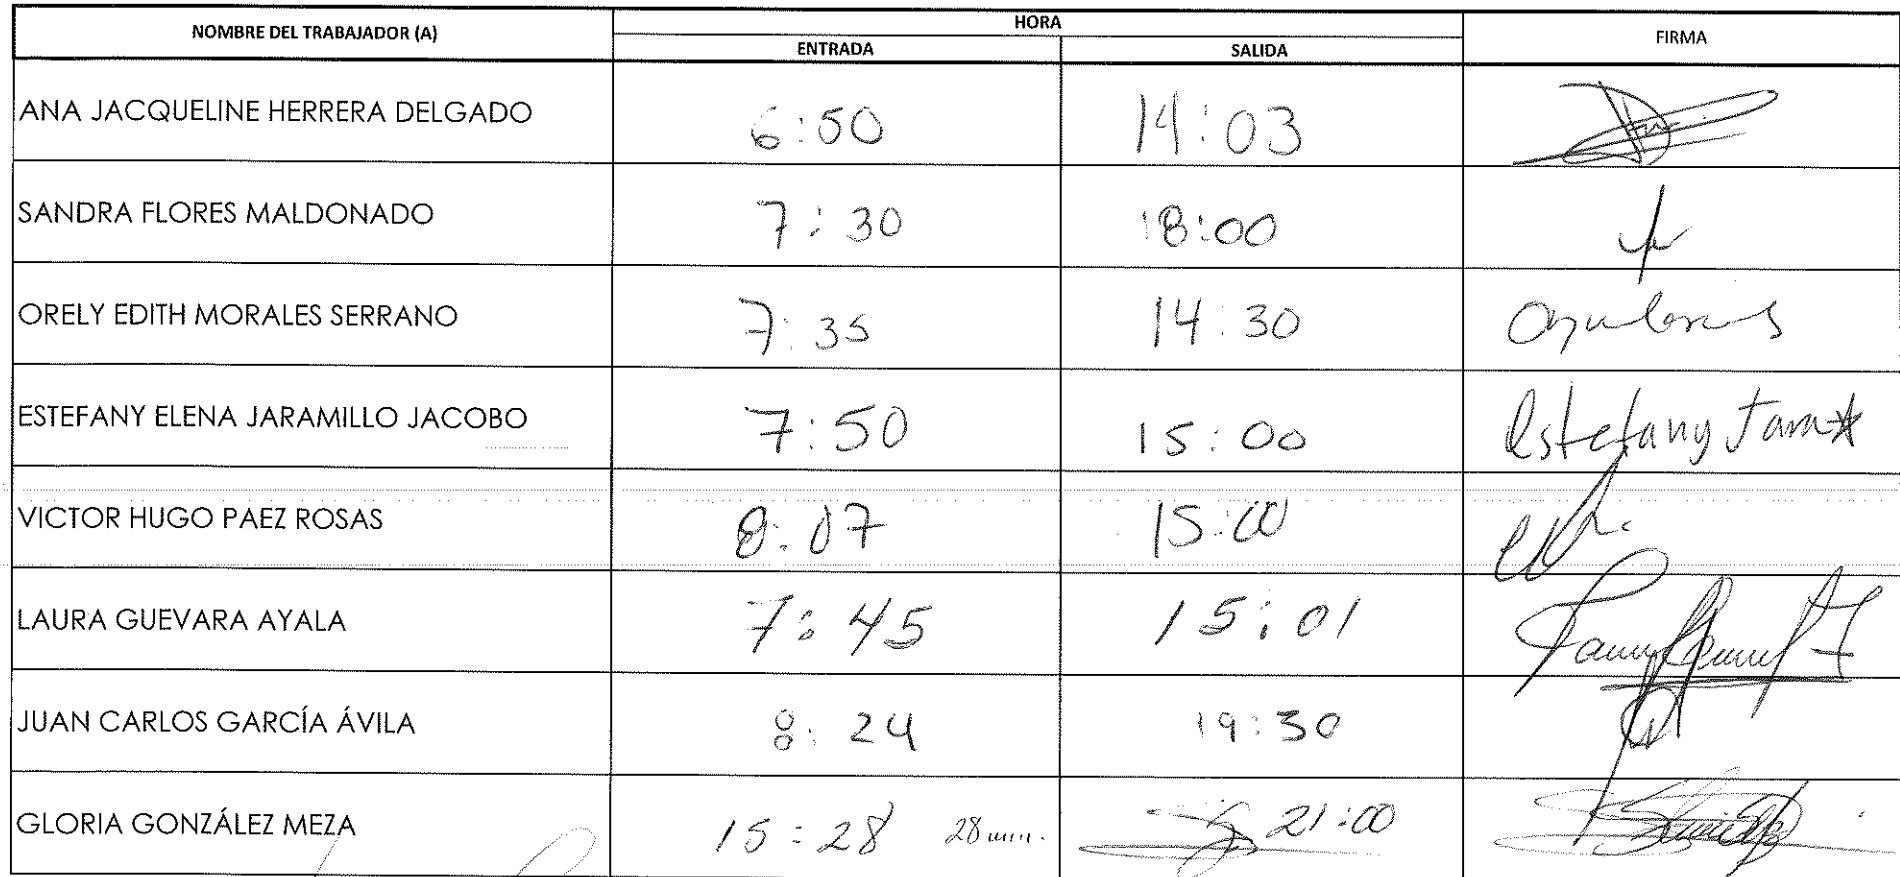 NOMBRE DEL TRABAJADOR (A) HORA FIRMA
ENTRADA SALIDA
ANA JACQUELINE HERRERA DELGADO 6:50 14:03
SANDRA FLORES MALDONADO 7:30 18:00
ORELY EDITH MORALES SERRANO 7:35 14:30
ESTEFANY ELENA JARAMILLO JACOBO 7:50 15:00 Estefany Jara
VICTOR HUGO PAEZ ROSAS 8:07 15:00
LAURA GUEVARA AYALA 7:45 15:01
JUAN CARLOS GARCÍA ÁVILA 8:24 19:30
GLORIA GONZÁLEZ MEZA 15:28 28 min. 21:00